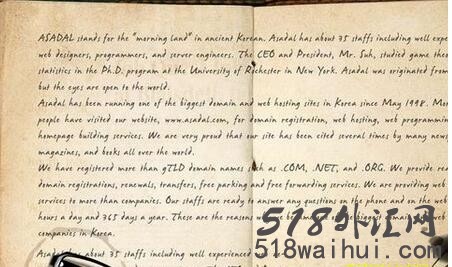 ASADAL stands for the "morning land" in ancient Korean. Asadal has about 35 staffs including well expe
web designers, programmers, and server engineers. The CEO and President, Mr. Suh, studied game theo
statistics in the Ph.D. program at the University of Rochester in New York. Asadal was originated from
but the eyes are open to the world.
Asadal has been running one of the biggest domain and web hosting sites in Korea since May 1998. Mor
people have visited our website, www.asadal.com, for domain registration, web hosting, web programmin
homepage building services. We are very proud that our site has been cited several times by many news
magazines, and books all over the world.
We have registered more than gTLD domain names such as .COM, .NET, and .ORG. We provide re
domain registrations, renewals, transfers, free parking and free forwarding services. We are providing web
services to more than companies. Our staffs are ready to answer any questions on the phone and on the web
hours a day and 365 days a year. These are the reasons
companies in Korea.
about 35 staffs including well experienced
518外汇网
518waihui.com